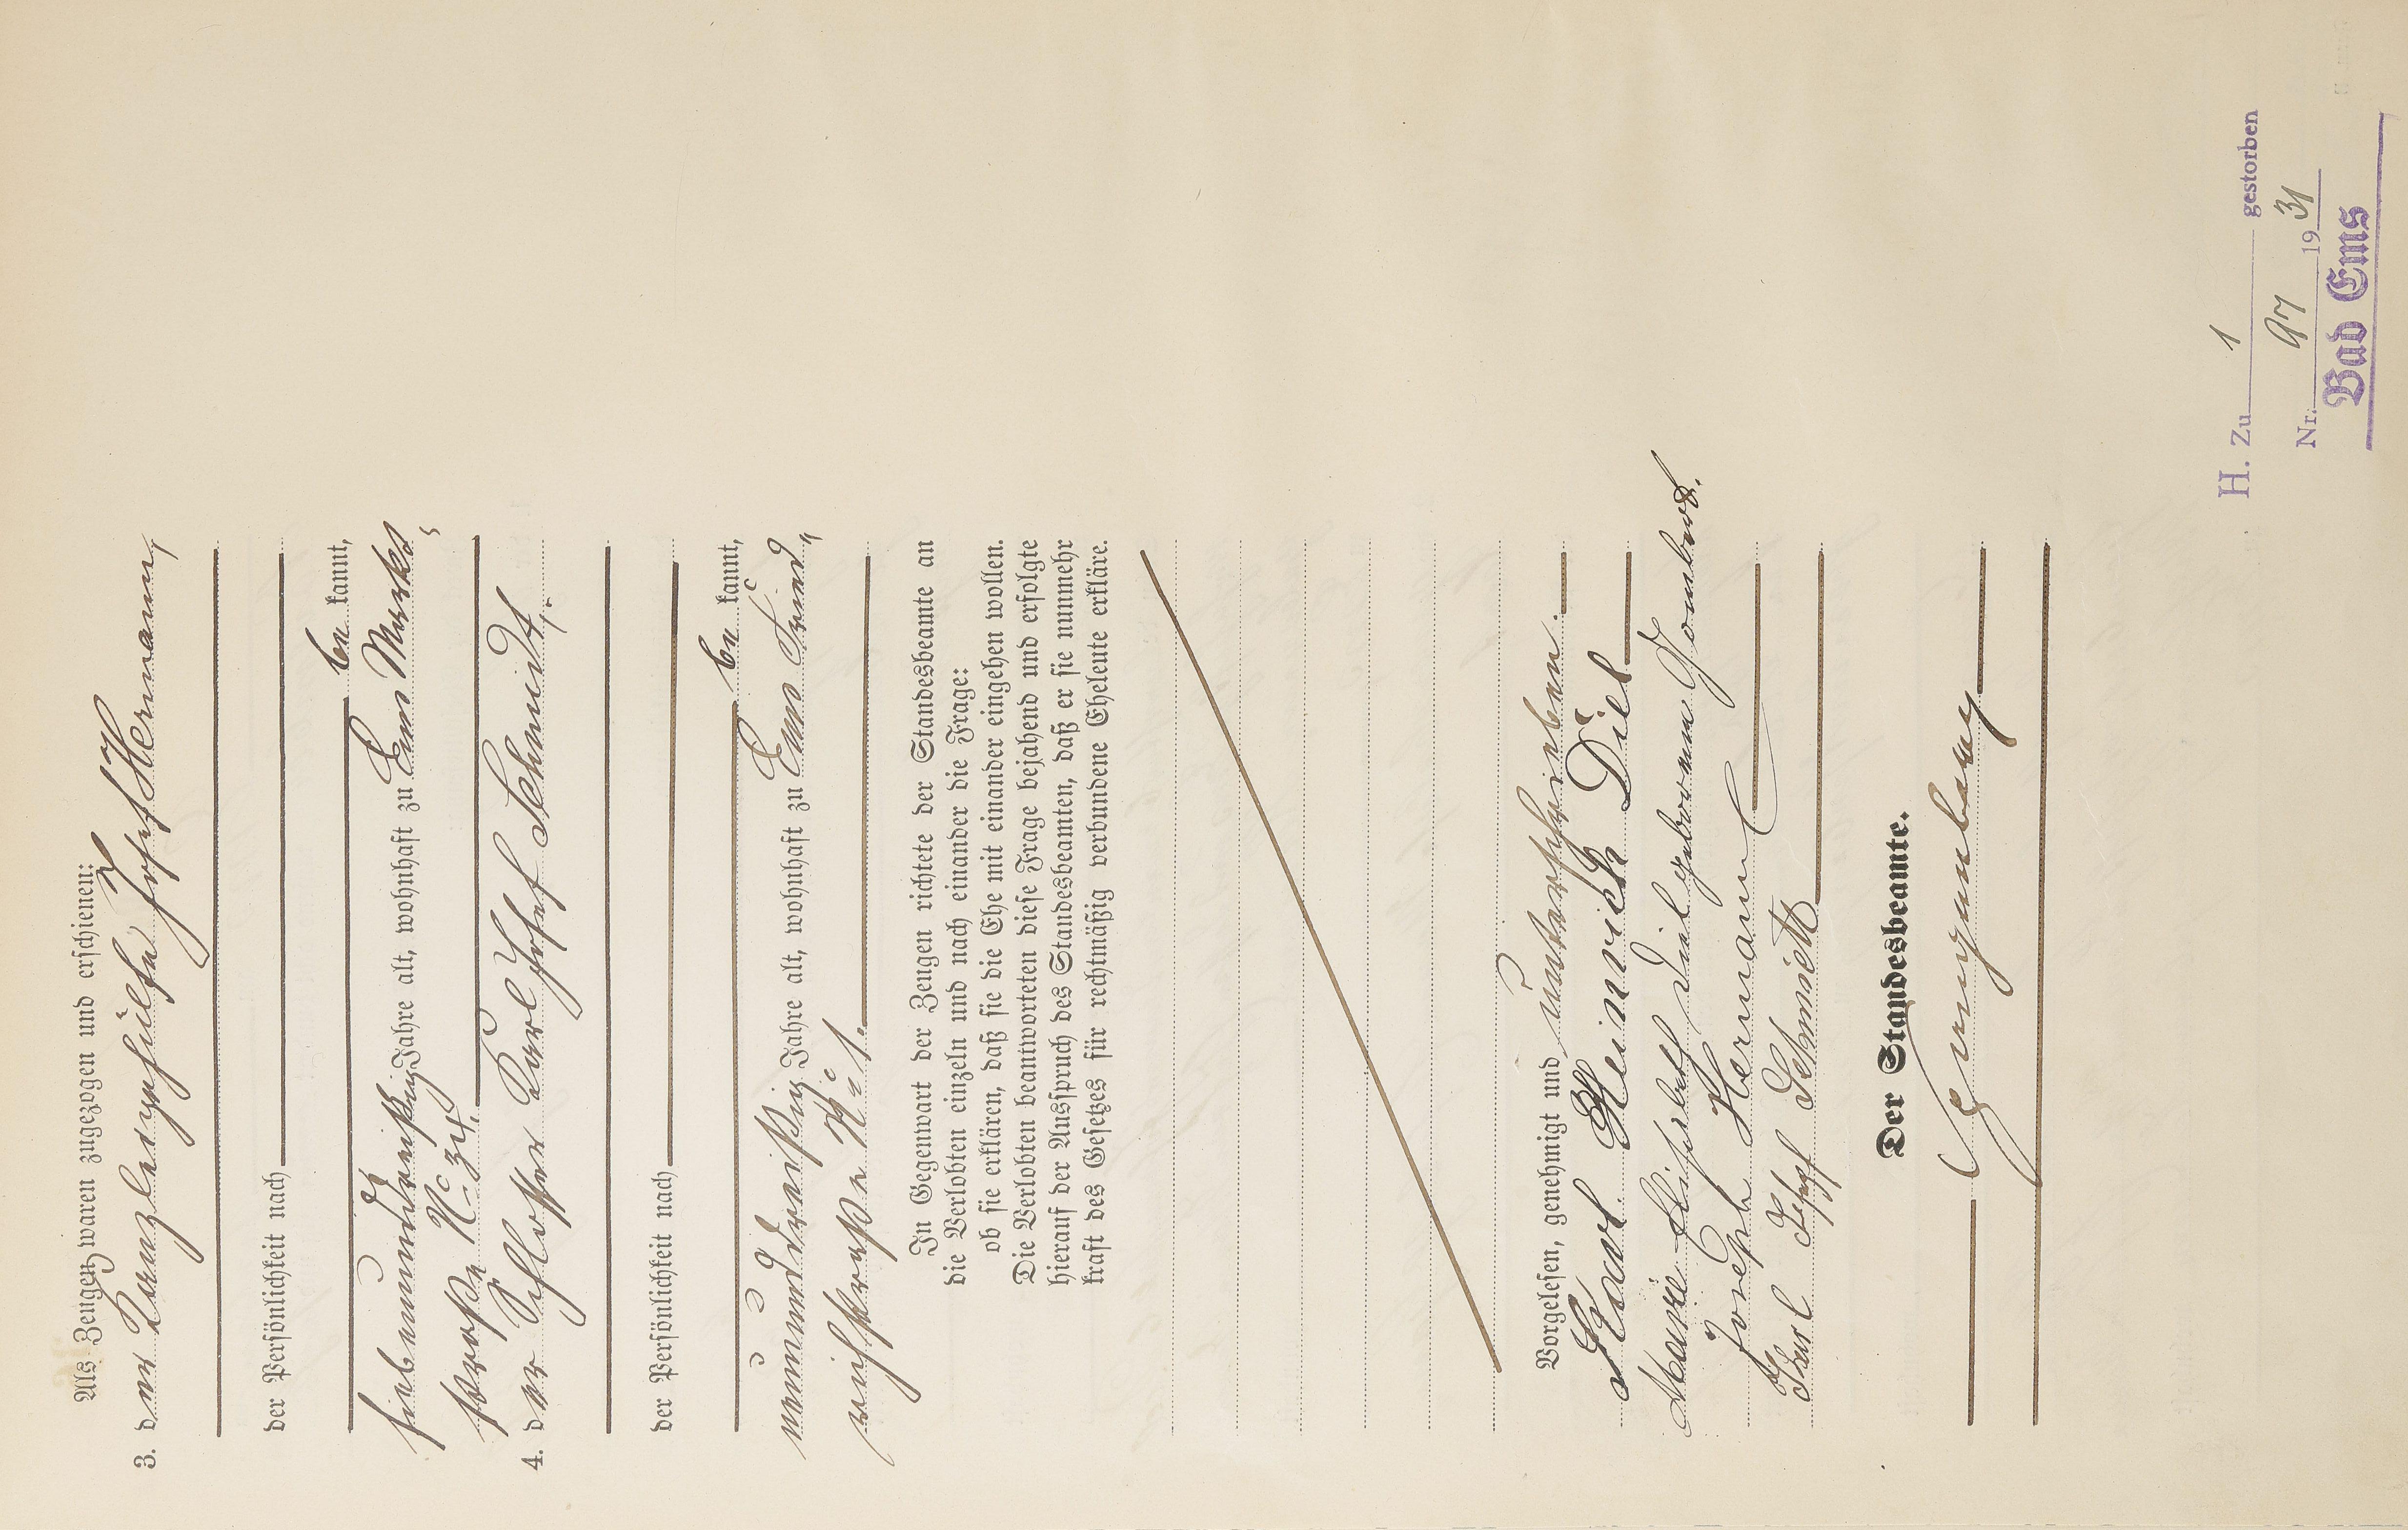 Als Zeugen waren zugezogen und erschienen:
3. der Kanzleigehülfe Josef Hermann,
der Persönlichkeit nach
be kannt,
siebenunddreißig Jahre alt, wohnhaft zu Ems Markt
straße No 34.
4. der Schlosser Karl Josef Schmidt,
der Persönlichkeit nach
be kannt,
neunundreißig Jahre alt, wohnhaft zu Ems Fried
richstraße No 1.
In Gegenwart der Zeugen richtete der Standesbeamte an
die Verlobten einzeln und nach einander die Frage:
ob sie erklären, daß sie die Ehe mit einander eingehen wollen.
Die Verlobten beantworteten diese Frage bejahend und erfolgte
hierauf der Ausspruch des Standesbeamten, daß er sie nunmehr
kraft des Gesetzes für rechtmäßig verbundene Eheleute erkläre.
Vorgelesen, genehmigt und unterschrieben.
Karl Heinrich Diel
Marie Elisabeth Diel geborenen Gombert.
Joseph Hermann
Karl Josef Schmidt
Der Standesbeamte.
H. Zu 1 gestorben
Nr. 97 1931
Bad Ems